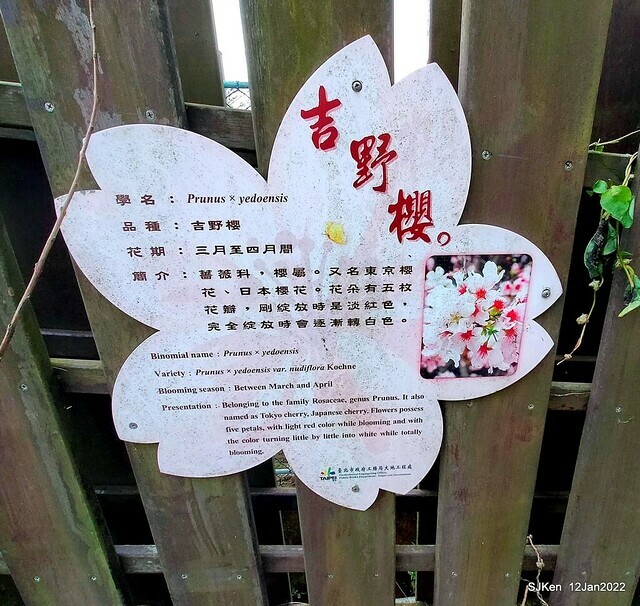 吉野櫻。
學名：Prunus × yedoensis
品種：吉野櫻
花期：三月至四月間
簡介：薔薇科，櫻屬。又名東京櫻
花、日本櫻花。花朵有五枚
花瓣，剛綻放時是淡紅色，
完全綻放時會逐漸轉白色。
Binomial name : Prunus × yedoensis
Variety : Prunus × yedoensis var. nudiflora Koehne
Blooming season : Between March and April
Presentation : Belonging to the family Rosaceae, genus Prunus. It also
named as Tokyo cherry, Japanese cherry. Flowers possess
five petals, with light red color while blooming and with
the color turning little by little into white while totally
blooming.
TAIPEI
臺北市政府工務局大地工程處
SJKen 12Jan2022